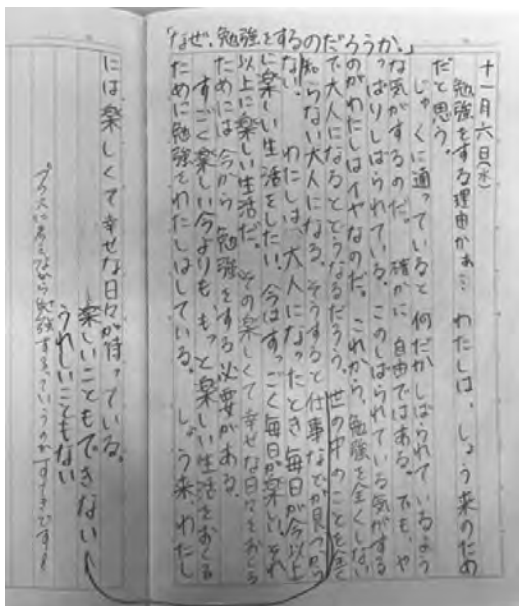 「なぜ、勉強をするのだろうか。」
十一月六日(水)
勉強をする理由かぁ… わたしは、しょう来のため
だと思う。
じゅくに通っていると何だかしばられているよう
な気がするのだ。確かに自由ではある。でも、や
っぱりしばられている。このしばられている気がする
のがわたしはイヤなのだ。これから、勉強を全くしない
で大人になるとどうなるだろう。世の中のことを全く
知らない大人になる。そうすると仕事などが見つから
ない。 わたしは、大人になったとき毎日が今以上
に楽しい生活をしたい。今はすっごく毎日が楽しい。それ
以上に楽しい生活だ。その楽しくて幸せな日々をおくる
ためには今から勉強をする必要がある。
すごく楽しい今よりももっと楽しい生活をおくる
ために勉強をわたしはしている。しょう来、わたし
には楽しくて幸せな日々が待っている。
楽しいこともできない
うれしいこともない
プラスに考えながら勉強するっていうのがすてきです!